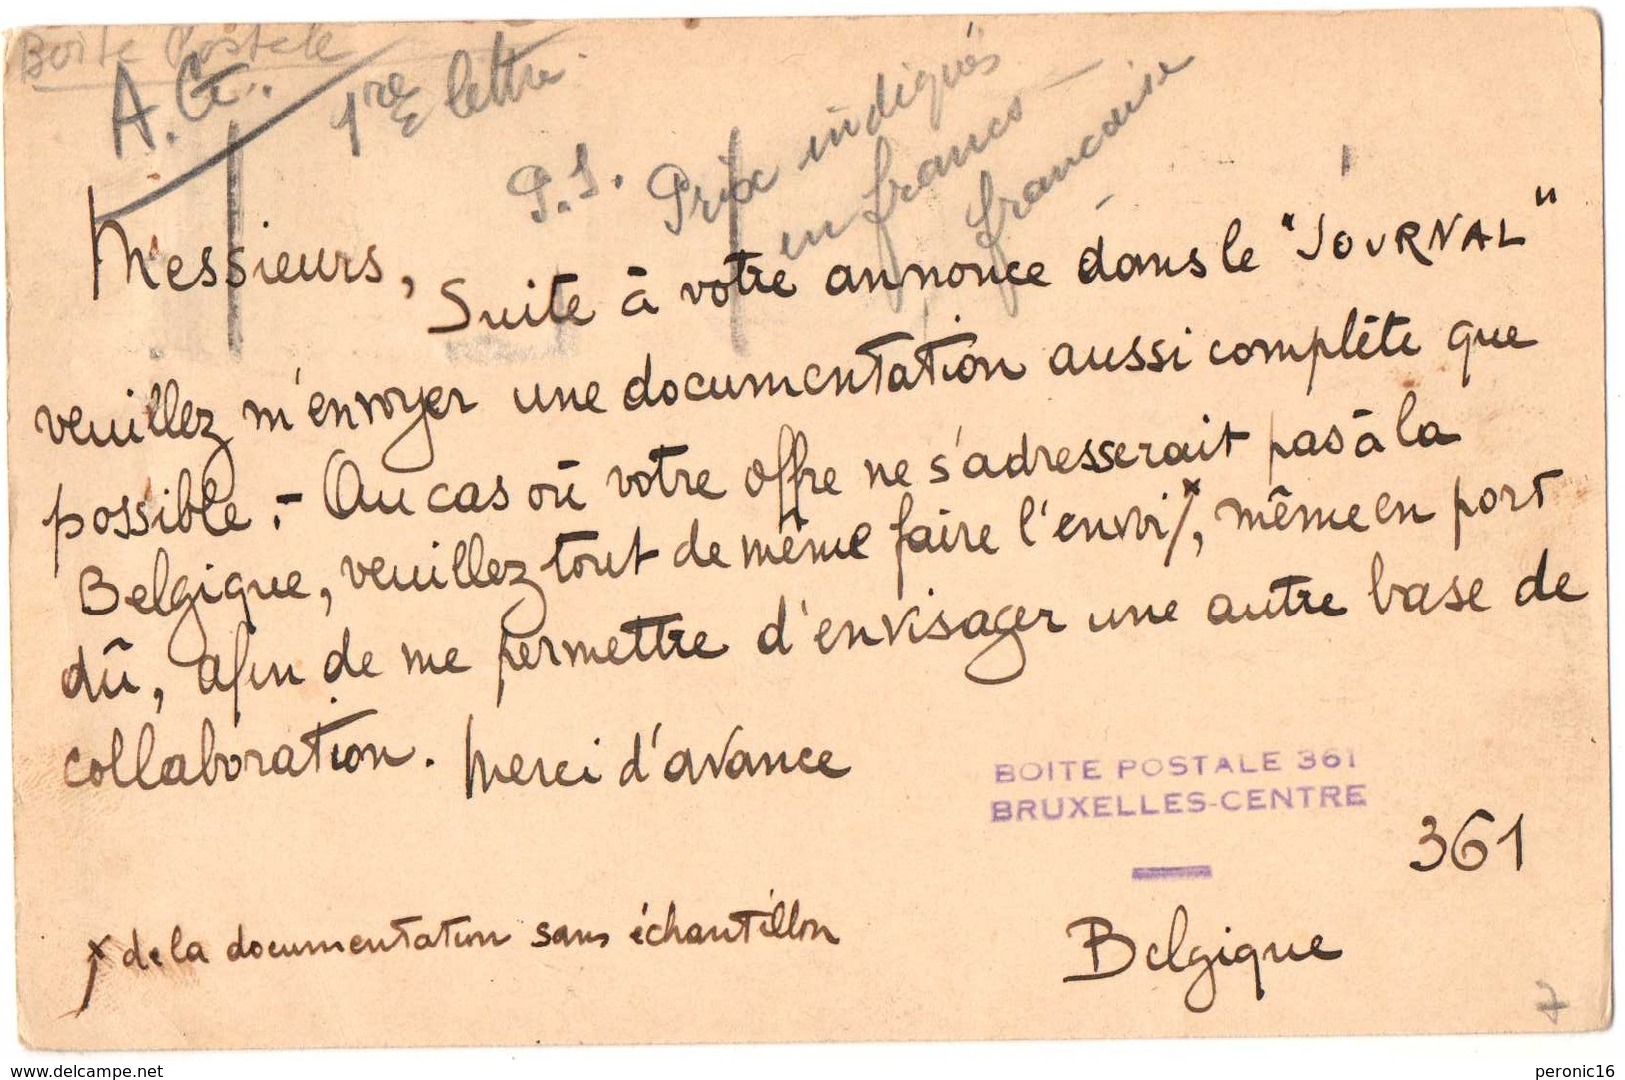 Boite Postale
A.G.
1re lettre
P.S. Prix indiqués
en francs
française
Messieurs,
Suite à votre annonce dans le "JOURNAL"
veuillez m'envoyer une documentation aussi complète que
possible. - Au cas où votre offre ne s'adresserait pas à la
Belgique, veuillez tout de même faire l'envoi x, même en port
dû, afin de me permettre d'envisager une autre base de
collaboration. Merci d'avance
BOITE POSTALE 361
BRUXELLES-CENTRE
361
x de la documentation sans échantillon
Belgique
7
www.delcampe.net
peronic16